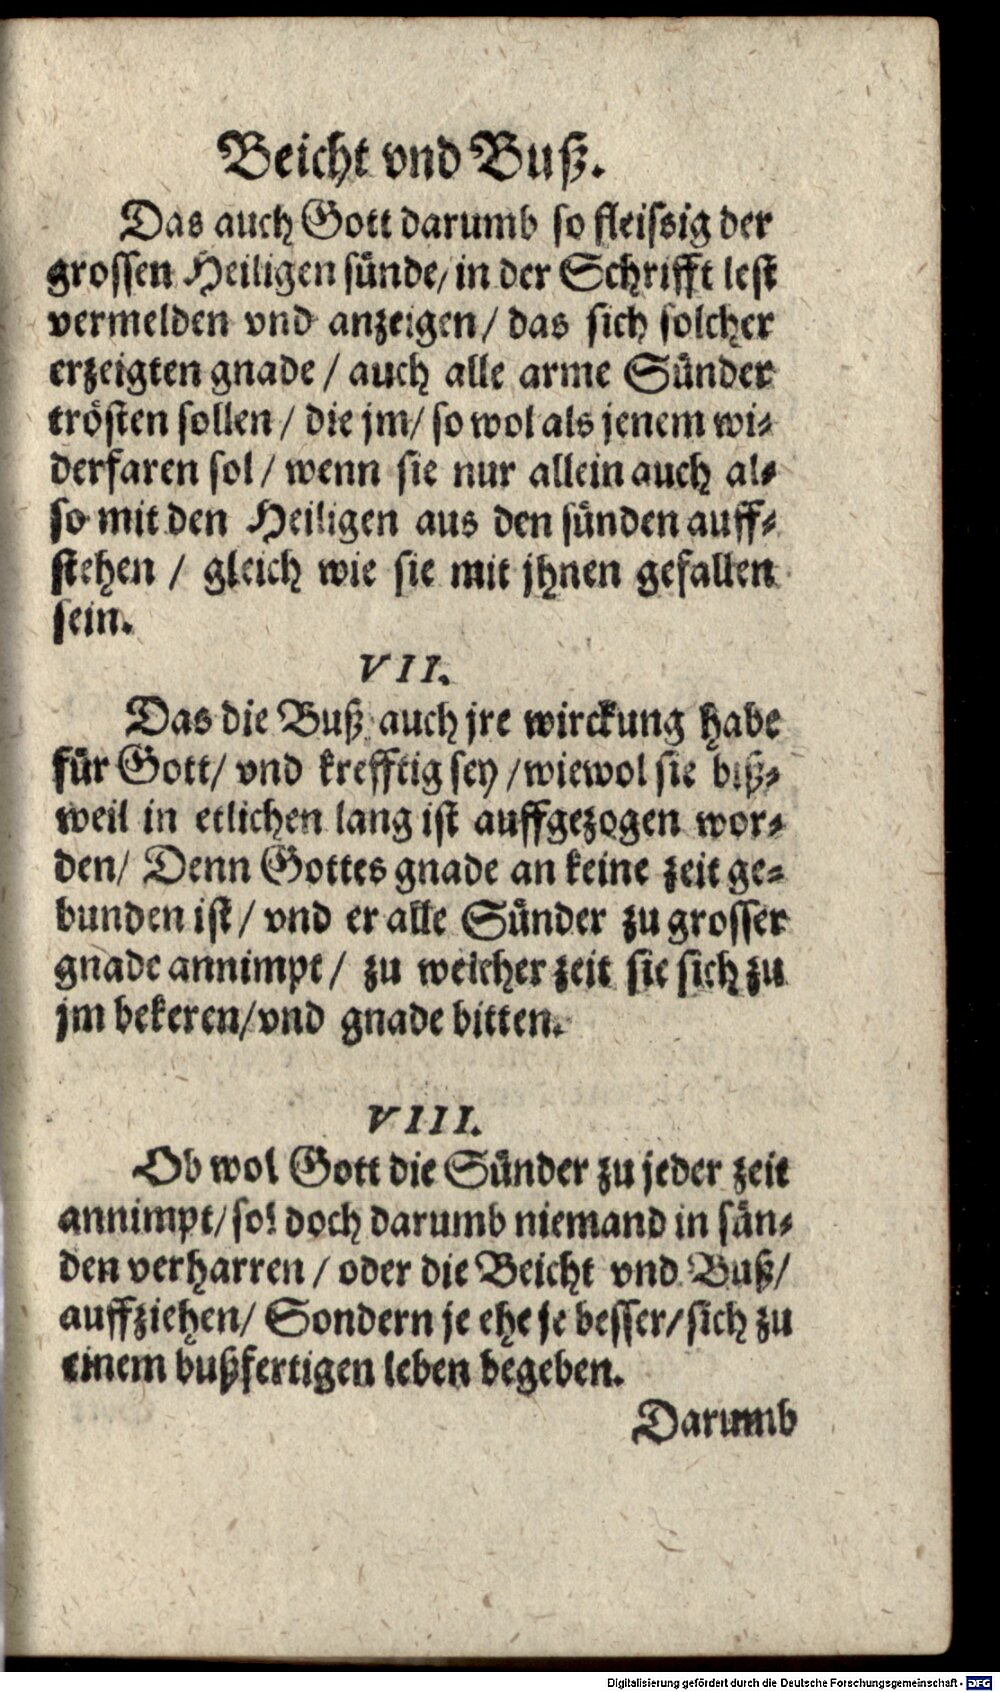 Beicht vnd Buß.
Das auch Gott darumb so fleissig der
grossen Heiligen sünde/ in der Schrifft lest
vermelden vnd anzeigen/ das sich solcher
erzeigten gnade / auch alle arme Sünder
trösten sollen / die jm/ so wol als jenem wi⸗
derfaren sol / wenn sie nur allein auch al⸗
so mit den Heiligen aus den sünden auff⸗
stehen / gleich wie sie mit jhnen gefallen
sein.
VII.
Das die Buß auch jre wirckung habe
für Gott/ vnd krefftig sey /wiewol sie biß⸗
weil in etlichen lang ist auffgezogen wor⸗
den/ Denn Gottes gnade an keine zeit ge⸗
bunden ist / vnd er alle Sünder zu grosser
gnade annimpt / zu welcher zeit sie sich zu
jm bekeren/vnd gnade bitten.
VIII.
Ob wol Gott die Sünder zu jeder zeit
annimpt/ sol doch darumb niemand in sün⸗
den verharren / oder die Beicht vnd Buß/
auffziehen/ Sondern je ehe je besser/ sich zu
einem bußfertigen leben begeben.
Darumb
Digitalisierung gefördert durch die Deutsche Forschungsgemeinschaft - DFG